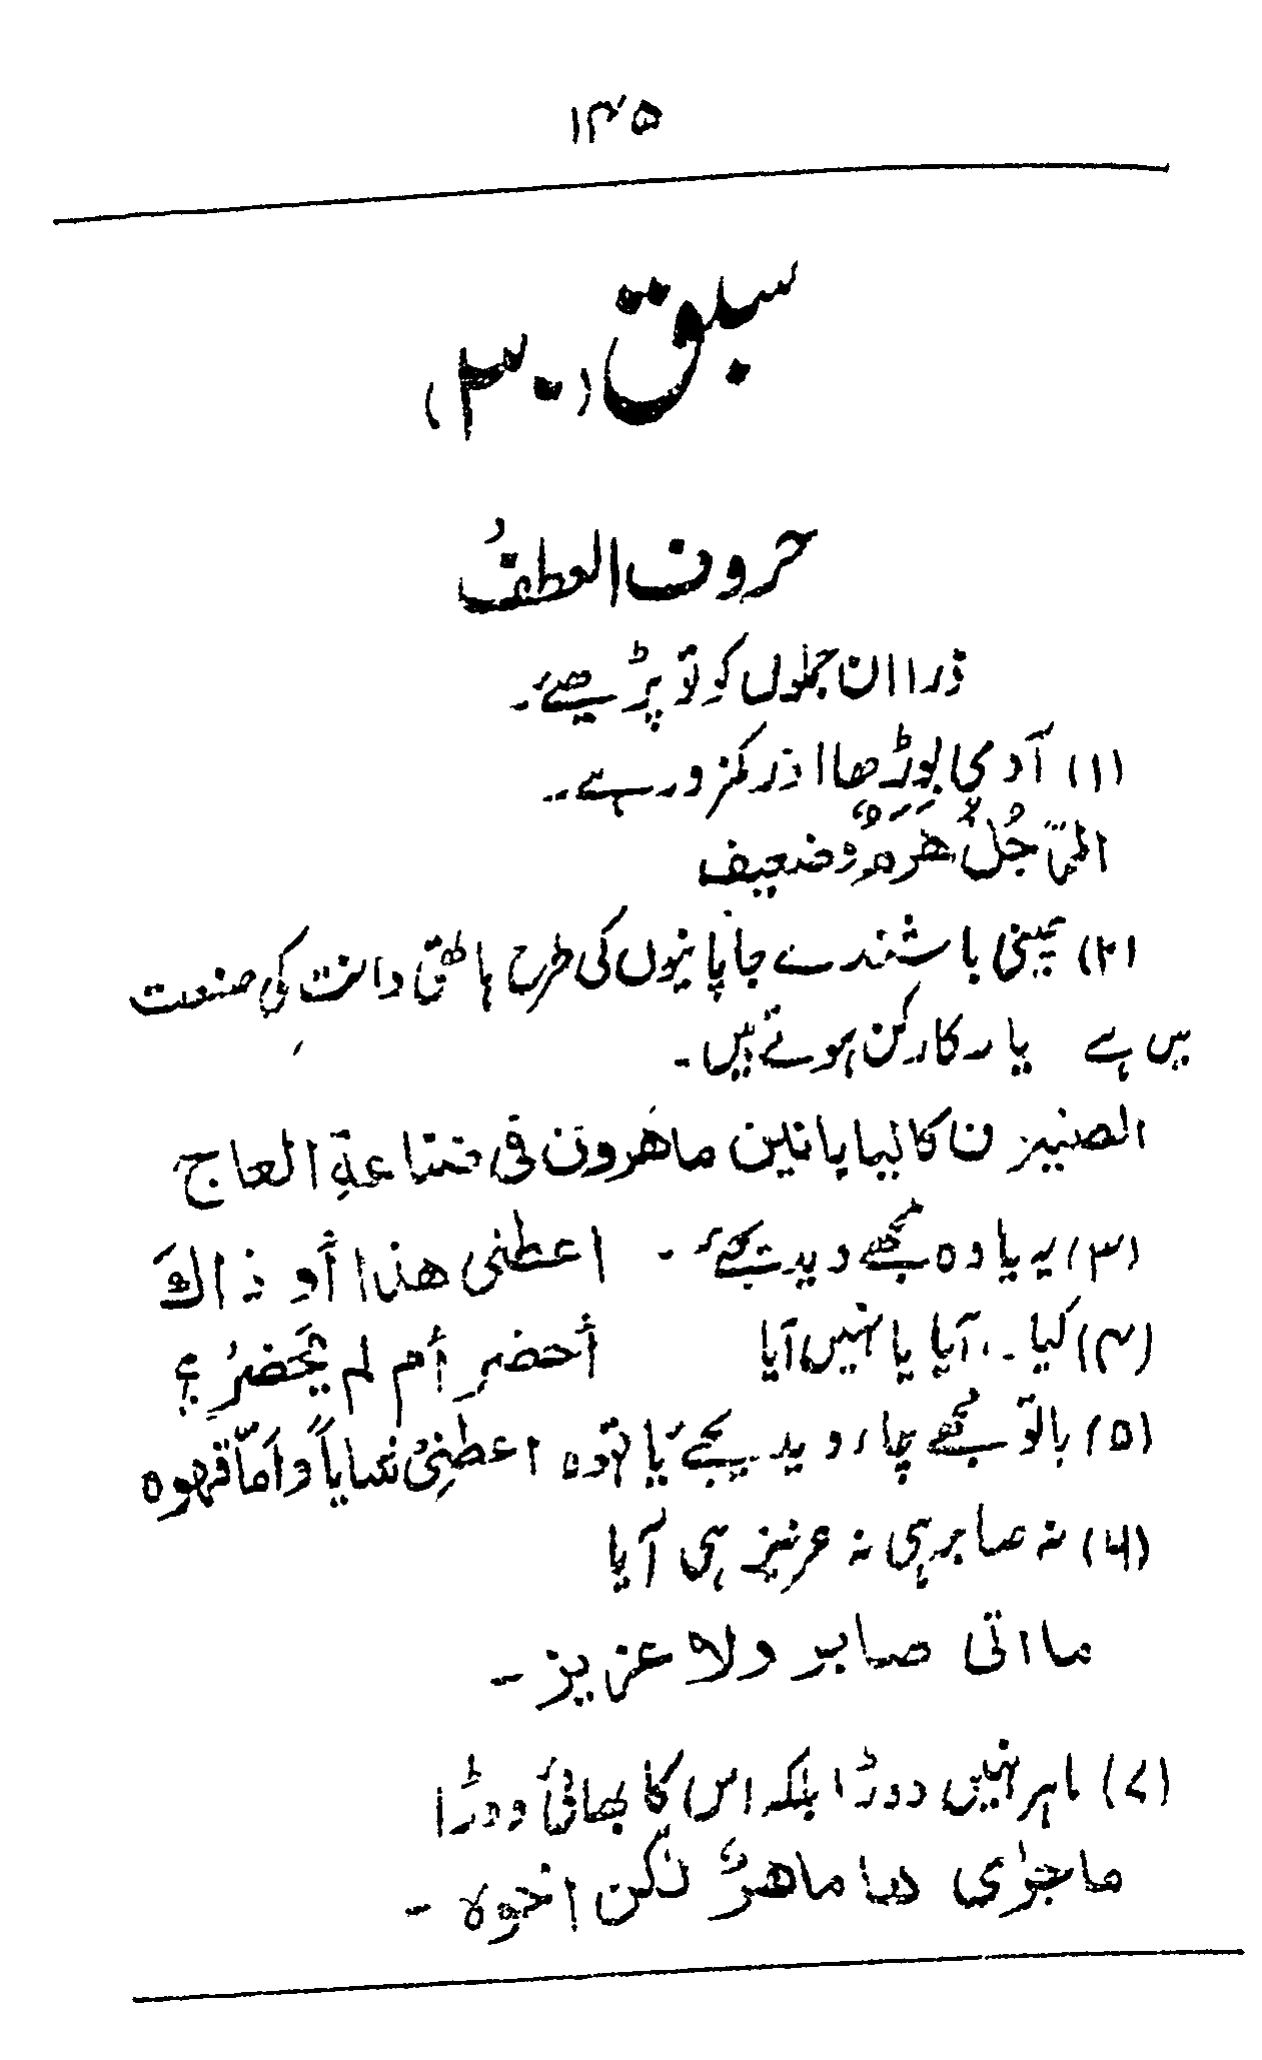 ۱۴۵
سبق (۳۰)
حروف العطف
ذرا ان جملوں کو تو پڑھیے۔
(۱) آدمی بوڑھا اور کمزور ہے۔
الرّجُلُ هَرَمٌ وَضعيف
(۲) چینی باشندے جاپانیوں کی طرح ہاتھی دانت کی صنعت
میں بے یار کارکن ہوتے ہیں۔
الصنييزن كاليابانين ماهرون فى صناعةِ العاج
(۳) یہ یا وہ مجھے دیدیجئے۔ اعطنى هذا أو ذاكَ
(۴) کیا ۔۔ آیا یا نہیں آیا أحضر أم لم يَحضُر؟
(۵) یا تو مجھے چاء دیدیجئے یا قہوہ اعطنِىْ شاياً وَاَمّا قهوه
(۶) نہ صابر ہی نہ عزیز ہی آیا
ما اتى صابر ولا عزيز ۔
(۷) ماہر نہیں دوڑا بلکہ اس کا بھائی دوڑا
ما جرٰى ماهرٌ لٰكن اخوه ۔